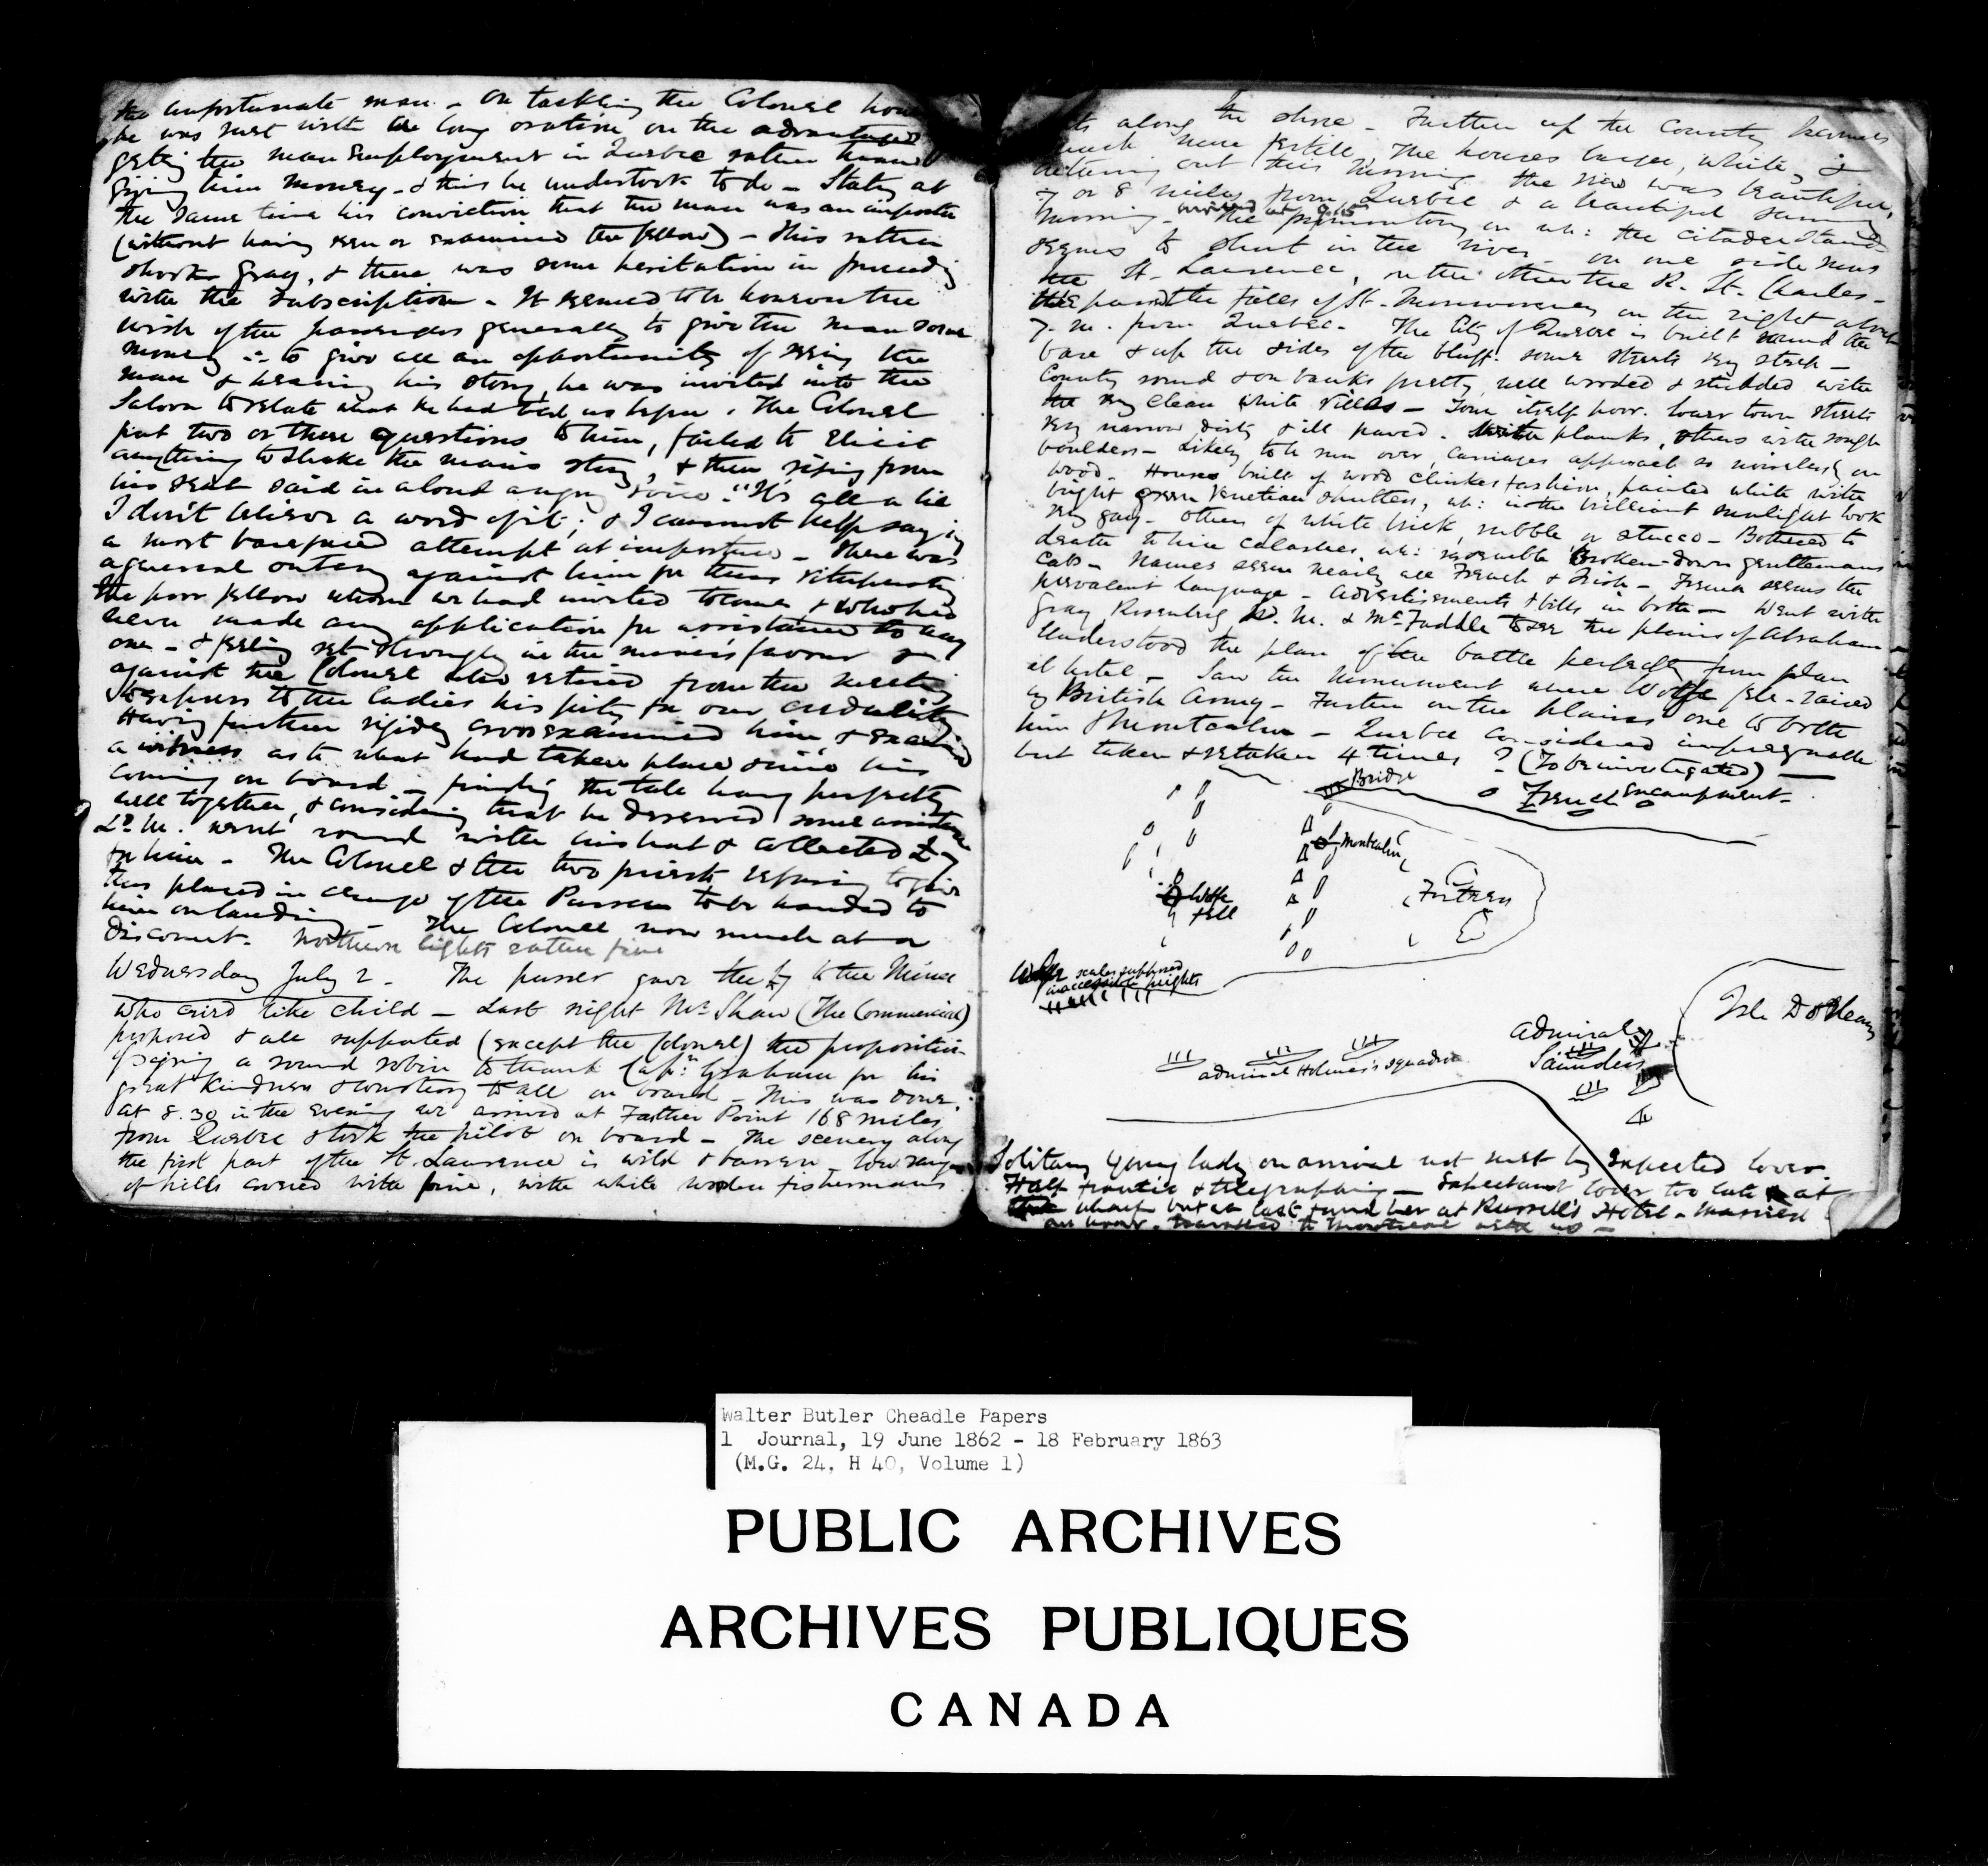 the unfortunate man - On tackling the Colonel how
he was met with a long oration on the advantages
getting the man Employment in Quebec rather than
giving him money - & this he undertook to do - Stating at
the same time his conviction that the man was an imposter
(without having seen or examined the fellow) - This rather
shook Gray, & there was some hesitation in proceeding
with the subscription - It seemed to be however the
wish of the passengers generally to give the man some
money ∴ to give all an opportunity of seeing the
man & hearing his story, he was invited into the
Saloon to relate what he had told us before. The Colonel
put two or three questions to him, failed to elicit
anything to shake the man's story, & then rising from
his seat said in a loud angry voice "It's all a lie
I don't believe a word of it; & I cannot help saying
a most barefaced attempt at imposture - There was
a general outcry against him for thus vituperating
the poor fellow whom we had invited to come, & who had
never made any application for assistance to any
one - & feeling set strongly in the man's favour &
against the Colonel who retired from the meeting
to express to the ladies his pity for our credulity
Having further rigidly crossexamined him & examined
a witness as to what had taken place since his
coming on board - finding the tale hang perfectly
well together, & considering that he deserved some assistance
Ld M. went round with his hat & collected £7
for him - The Colonel & the two priests refusing to give
this placed in charge of the Purser to be handed to
him on landing - The Colonel now much at a
discount. Northern lights rather fine
Wednesday July 2 - The purser gave the £7 to the Miner
who cried like child - Last night Mr Shaw (The Commercial)
proposed & all supported (except the Colonel) the proposition
of signing a round robin to thank Capn: Graham for his
great kindness & courtesy to all on board - This was done.
At 8.30 in the evening we arrived at Father Point 168 miles
from Quebec & took the pilot on board - The scenery along
the first part of the St. Lawrence is wild & barren - low range
of hills covered with pine, with white wooden fishermans
along the shore - Further up the country becomes
much more fertile, the houses larger, white, &
out this morning the view was beautiful,
7 or 8 miles from Quebec & a beautiful sunny
morning - The promontory on wh: the citadel stands
arrived at 9.15
seems to shut in the river - on one side runs
the St. Lawrence, on the other the R. St. Charles -
passed the falls of St. Monmorency on the right about
7. m. from Quebec - The City of Quebec is built round the
base & up the sides of the bluff. some streets very steep -
Country round & on banks pretty, well wooded & studded with
the very clean white villas - Town itself poor. lower town streets
very narrow dirty & ill paved. planks, others with rough
boulders - Likely to be run over, carriages approach so noiselessly on
wood. Houses built of wood clinker fashion, painted white with
bright green Venetian shutters, wh: in the brilliant sunlight look
very gay - others of white brick, rubble or stucco - Bothered to
death to hire calashes, wh: resemble Broken-down gentlemans
cabs - Names seem nearly all French & Irish - French seems the
prevalent language - Advertisements & bills in both - Went with
Gray Rosenberg Ld. M. & McFaddle to see the plains of Abraham
Understood the plan of the battle perfectly from plan
at hotel - Saw the Monument where Wolfe fell - raised
by British Army - Further on the plains one to both
him & Montcalm - Quebec considered impregnable
but taken & retaken 4 times ? (To be investigated) -
Bridge
French Encampment
Montcalm
Wolfe
fell
Fortress
Wolfe scales supposed
inaccessible heights
Admiral Holmes's squadron
Admiral
Saunders
Isle D'Orleans
Solitary young lady on arrival not met by expected lover
Half frantic & telegraphing - Expectant lover too late at
the wharf but at last found her at Russell's Hotel - married
an hour - travelled to Montreal with us -
Walter Butler Cheadle Papers
1 Journal, 19 June 1862 - 18 February 1863
(M.G. 24, H 40, Volume 1)
PUBLIC ARCHIVES
ARCHIVES PUBLIQUES
CANADA